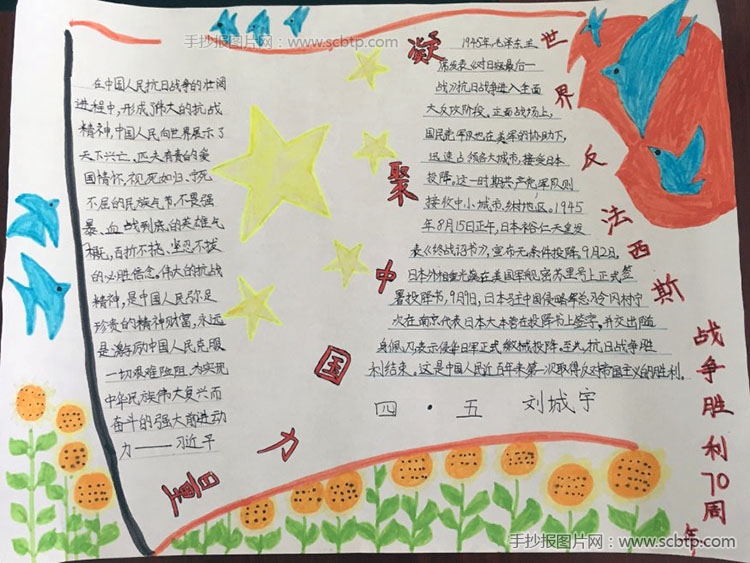 手抄报图片网：www.scbtp.com
凝聚中国力量
世界反法西斯
战争胜利70周年
在中国人民抗日战争的壮阔
进程中，形成了伟大的抗战
精神，中国人民向世界展示了
天下兴亡、匹夫有责的爱
国情怀，视死如归、宁死
不屈的民族气节，不畏强
暴、血战到底的英雄气
概，百折不挠、坚忍不拔
的必胜信念。伟大的抗战
精神，是中国人民弥足
珍贵的精神财富，永远
是激励中国人民克服
一切艰难险阻、为实现
中华民族伟大复兴而
奋斗的强大前进动
力——习近平
1945年，毛泽东主
席发表《对日寇最后一
战》抗日战争进入全面
大反攻阶段。正面战场上，
国民党军队也在美军的协助下，
迅速占领各大城市，接受日本
投降，这一时期共产党军队则
接收中小城市，乡村地区。1945
年8月15日正午，日本裕仁天皇发
表《终战诏书》，宣布无条件投降，9月2日，
日本外相重光葵在美国军舰密苏里号上正式签
署投降书，9月9日，日本驻中国侵略军总司令冈村宁
次在南京代表日本大本营在投降书上签字，并交出随
身佩刀，表示侵华日军正式缴械投降，至此，抗日战争胜
利结束。这是中国人民近百年来第一次取得反对帝国主义的胜利。
四·五 刘城宇
手抄报图片网：www.scbtp.com